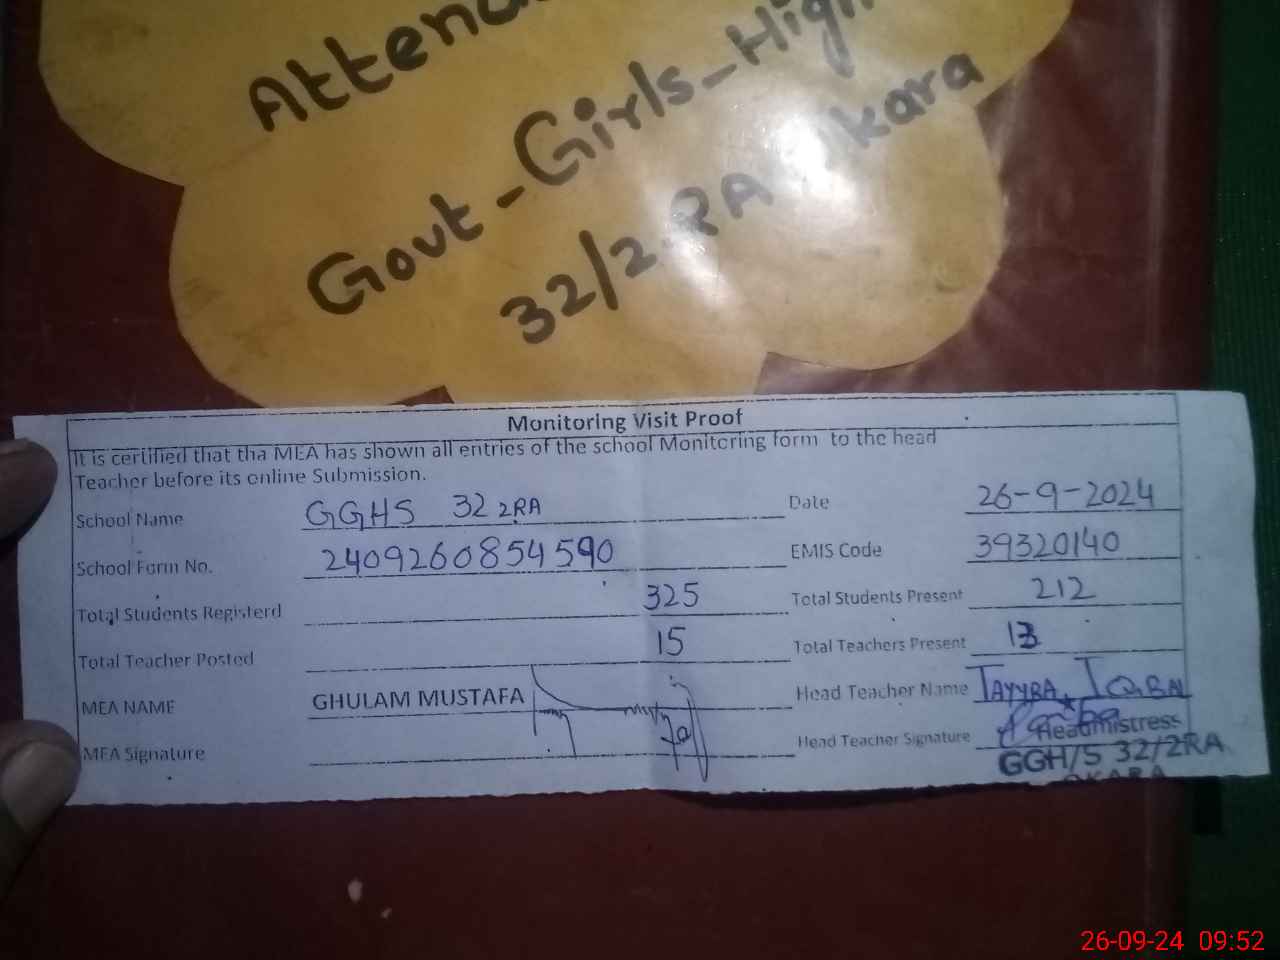 Atten
Govt-Girls-High
32/2.RA kara
Monitoring Visit Proof
It is certified that tha MEA has shown all entries of the school Monitoring form to the head
Teacher before its online Submission.
School Name GGHS 32 2RA Date 26-9-2024
School Form No. 2409260854590 EMIS Code 39320140
Total Students Registerd 325 Total Students Present 212
Total Teacher Posted 15 Total Teachers Present 13
MEA NAME GHULAM MUSTAFA Head Teacher Name TAYYBA IQBAL
MEA Signature Head Teacher Signature
Headmistress
GGH/S 32/2RA
OKARA
26-09-24 09:52